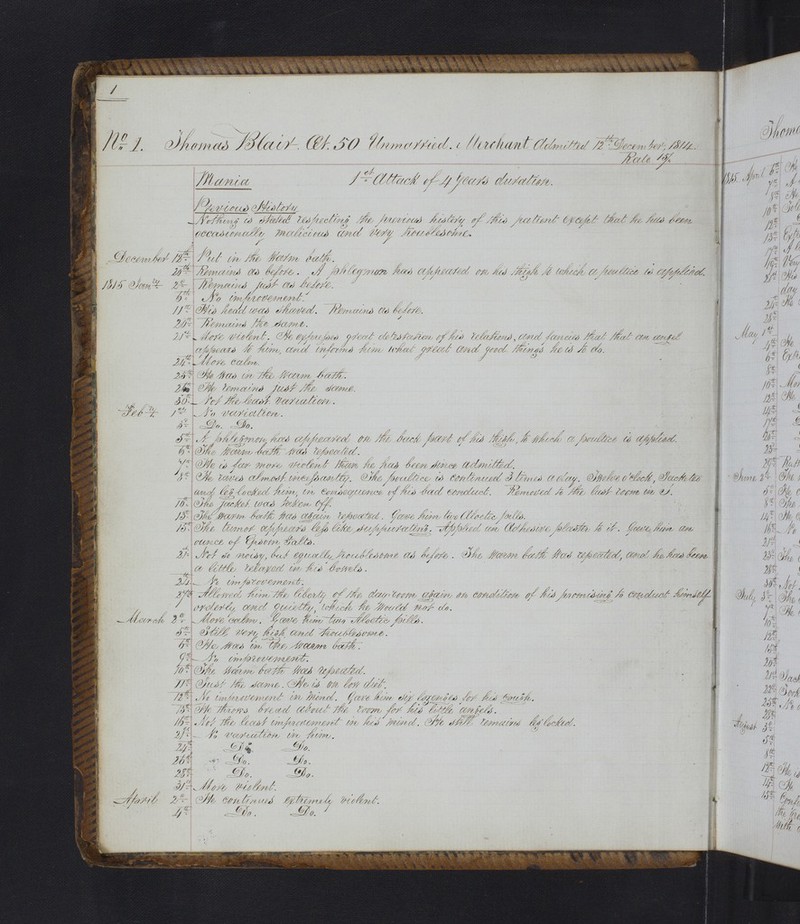 1
No. 1. Thomas Blair. Æt. 50 Unmarried. Merchant Admitted 12th December, 1814.
Rate 15/.
Mania 1st Attack of 4 Years duration.
Previous History
Nothing is stated respecting the previous history of this patient except that he has been
occasionally malicious and very troublesome.
December 12th Put in the warm bath.
20th Remains as before. A phlegmon has appeared on his thigh to which a poultice is applied.
1815 Jany 2d Remains just as before.
6th No improvement.
11th His head was shaved. Remains as before.
20th Remains the same.
21st More violent. He expresses great detestation of his relations, and fancies that that an angel
appears to him, and informs him what great and good things he is to do.
24th More calm.
25th He was in the warm bath.
He remains just the same.
30th Not the least variation.
Feby 1st No variation.
4th Do. Do.
5th A phlegmon has appeared on the back part of his thigh, to which a poultice is applied.
6th The warm bath was repeated.
7th He is far more violent than he has been since admitted.
8th He raves almost incessantly. The poultice is continued 3 times a day. Twelve o'clock, Jacketed
and leg-locked him, in consequence of his bad conduct. Removed to the last room in
10th The jacket was taken off.
13th The warm bath was again repeated. Gave him two Aloetic pills.
15th The tumor appears less like suppurating. Applied an Adhesive plaster to it. Gave him an
ounce of Epsom Salts.
Not so noisy, but equally troublesome as before. The warm bath was repeated, and he has been
a little relaxed in his bowels.
No improvement.
27th Allowed him the liberty of the day room again on condition of his promising to conduct himself
orderly and quietly, which he would not do.
March 2d More calm. Gave him two Aloetic pills.
5th Still very high and troublesome.
6th He was in the warm bath.
9th No improvement.
10th The warm bath was repeated.
11th Just the same. He is on low diet.
12th No improvement in mind. Gave him six lozenges for his cough.
14th He throws bread about the room for his little angels.
16th Not the least improvement in his mind. He still remains leg locked.
21st No variation in him.
24th Do. Do.
26th Do. Do.
28th Do. Do.
31st More violent.
April 2d He continues extremely violent.
4th Do. Do.
1815 April 6th
7th
8th
10th
May 1st
4th
6th
June 2d
July
August